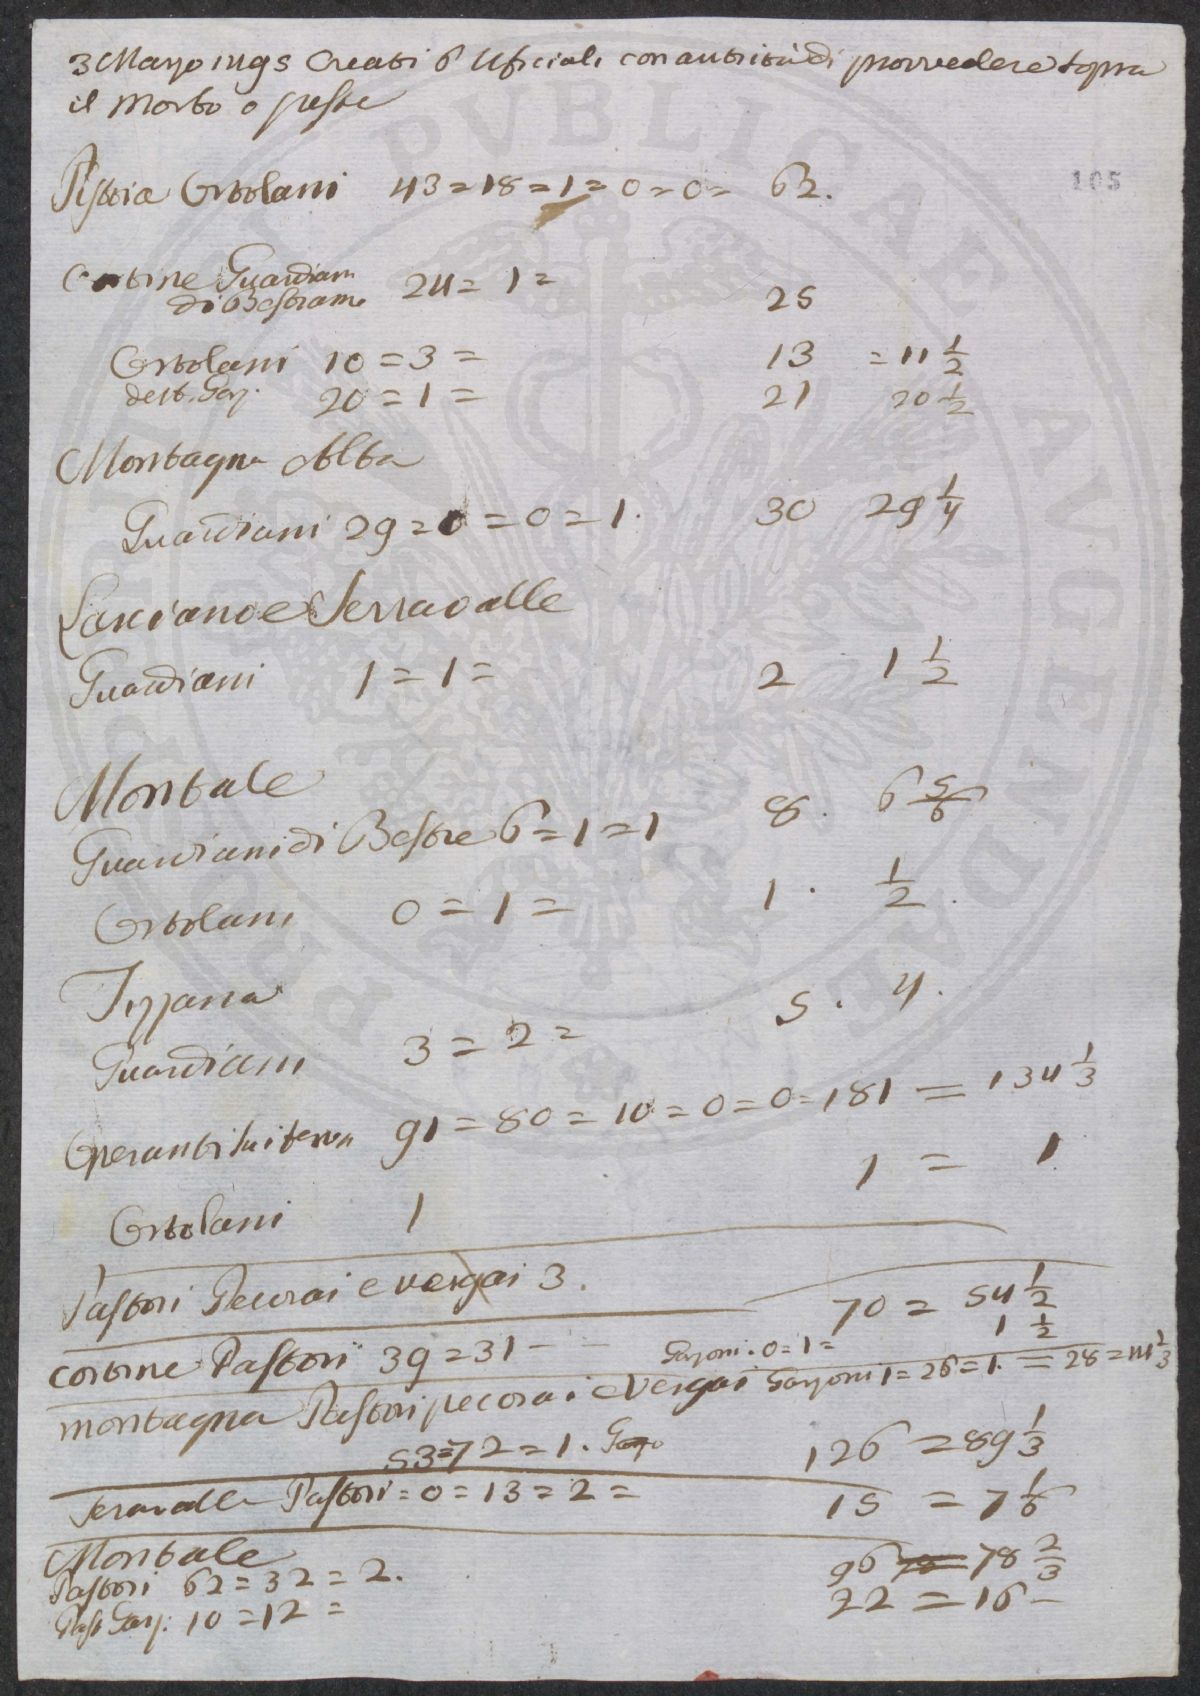 3 Marzo 1495 Creati 6 Uficiali con autorità di provvedere sopra
il Morbo o peste
105
Pistoia Ortolani 43=18=1=0=0= 62.
Cortine Guardiani
di Bestiame 24=1= 25
Ortolani 10=3= 13 =11 1/2
dett. Garz. 20=1= 21 20 1/2
Montagna Alta
Guardiani 29=0=0=1. 30 29 1/4
Larciano e Serravalle
Guardiani 1=1= 2 1 1/2
Montale
Guardiani di Bestie 6=1=1 8. 6 5/6
Ortolani 0=1= 1. 1/2.
Tizzana
Guardiani 3=2= 5. 4.
Operanti sui terren 91=80=10=0=0=181=134 1/3
Ortolani 1 1=1
Pastori Pecorai e vergai 3.
Cortine Pastori 39=31-- 70=54 1/2
Garzoni. 0=1= 1 1/2
montagna Pastori pecorai e Vergai Garzoni 1=26=1.=28=14 1/3
53=72=1. 126=89 1/3
Seravalle Pastori=0=13=2= 15=7 1/6
Montale
Pastori 62=32=2. 96 78 2/3
Past Garz. 10=12= 22=16-
PVBLICAE AVGENDAE